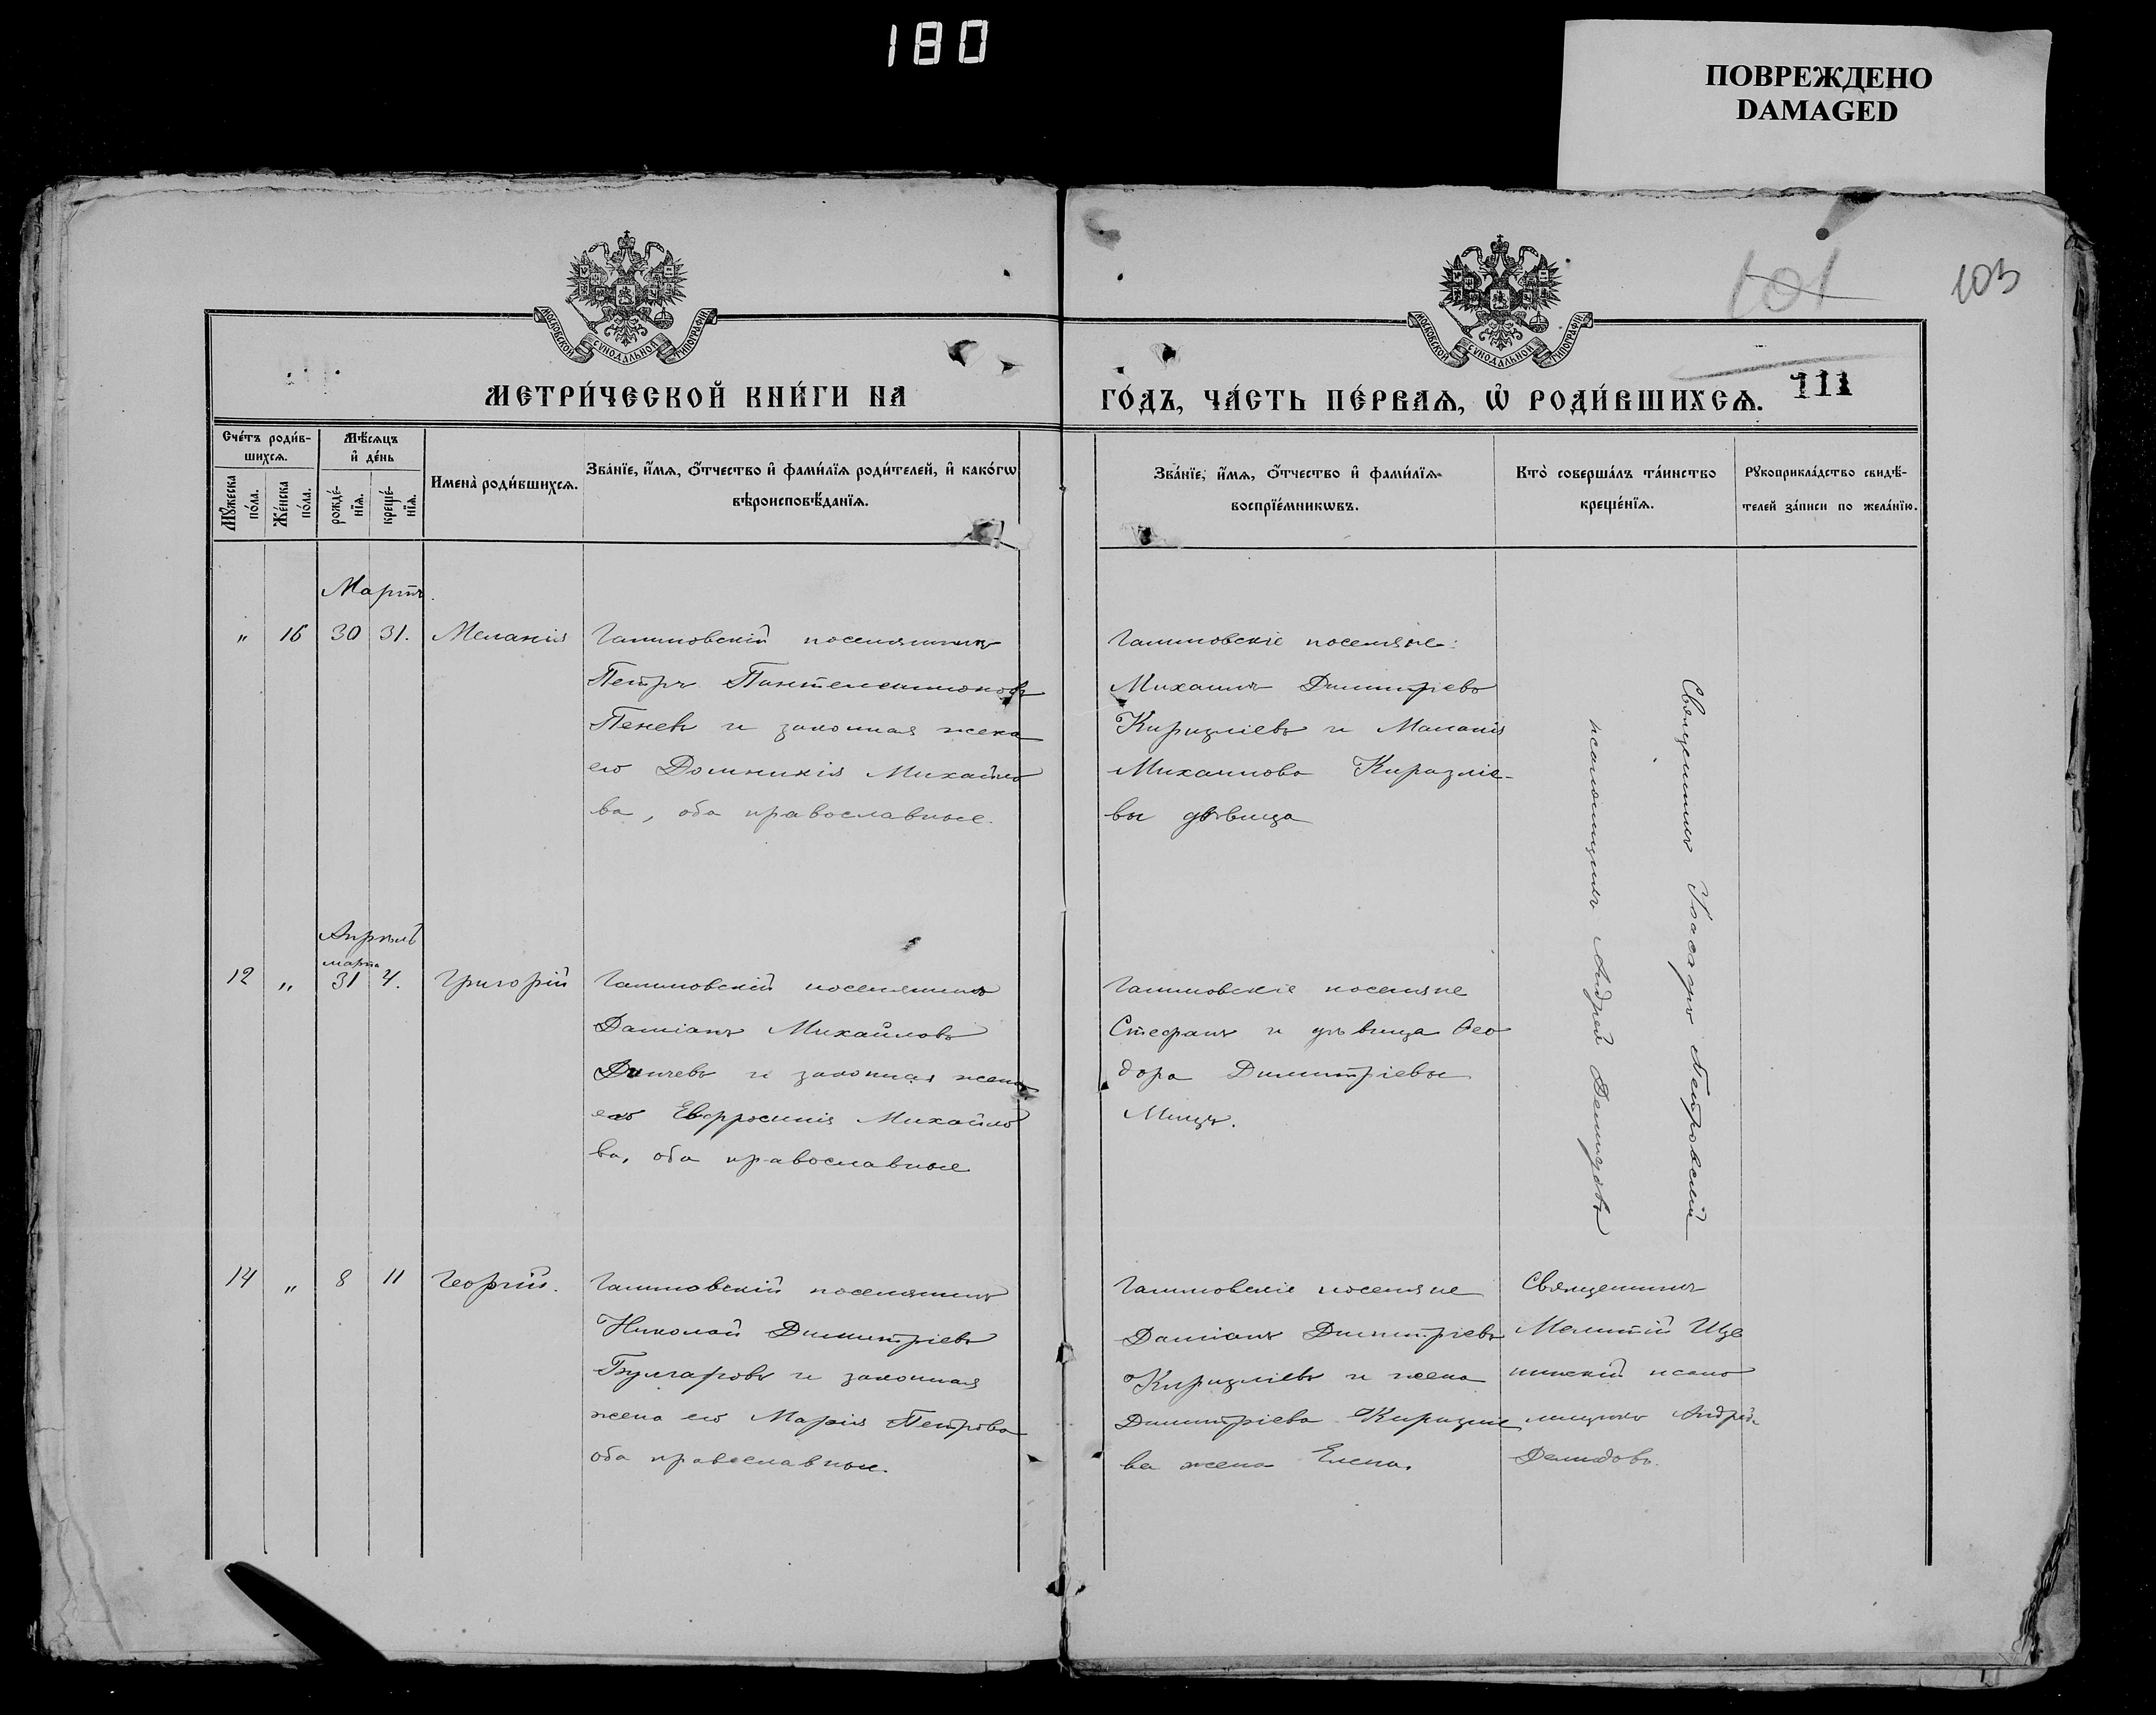 180
ПОВРЕЖДЕНО
DAMAGED
101
103
МОСКОВСКОЙ СѴНОДАЛЬНОЙ ТИПОГРАФІИ
МОСКОВСКОЙ СѴНОДАЛЬНОЙ ТИПОГРАФІИ
МЕТРИ́ЧЕСКОЙ КНИ́ГИ НА
ГО́ДЪ, ЧА́СТЬ ПЕ́РВАѦ, Ѡ҆ РОДИ́ВШИХСѦ.
111
Сче́тъ роди́в-
шихсѧ.
Мꙋ́жеска
по́ла.
Же́нска
по́ла.
Мѣ́сѧцъ
и҆ де́нь
рожде́-
нїѧ.
креще́-
нїѧ.
Имена̀ роди́вшихсѧ.
Зва́нїе, и҆́мѧ, ѻ҆́тчество и҆ фами́лїѧ роди́телей, и҆ како́гѡ
вѣроисповѣ́данїѧ.
Зва́нїе, и҆́мѧ, ѻ҆́тчество и҆ фами́лїѧ
воспрїе́мникѡвъ.
Кто̀ соверша́лъ та́инство
креще́нїѧ.
Рꙋкоприкла́дство свидѣ́-
телей за́писи по жела́нїю.
Мартъ.
„ 16 30 31. Меланія
Поселянинъ
Петръ Пантелеимоновъ
Пеневъ и законная жена
его Домникія Михайло
ва, оба православные.
поселяне:
Михаилъ Димитріевъ
Киризліевъ и Маланія
Михаилова Киризліе-
вы дѣвица
Священникъ Петровскій
псаломщикъ Андрей Демидовъ
Апрѣль
марта
12 „ 31 4. Григорій
поселянинъ
Даміанъ Михайловъ
и законная жена
его Евфросинія Михайло
ва, оба православные
поселяне
Стефанъ и дѣвица Ѳео
дора Димитріевы
14 „ 8 11 Георгій.
поселянинъ
Николай Димитріевъ
Булгаровъ и законная
жена его Марія Петрова
оба православные.
поселяне
Даміанъ Димитріевъ
Киризліевъ и жена
Димитріева Киризліе
ва жена Елена.
Священникъ
Мелитій
псало
мщикъ Андрей
Демидовъ.